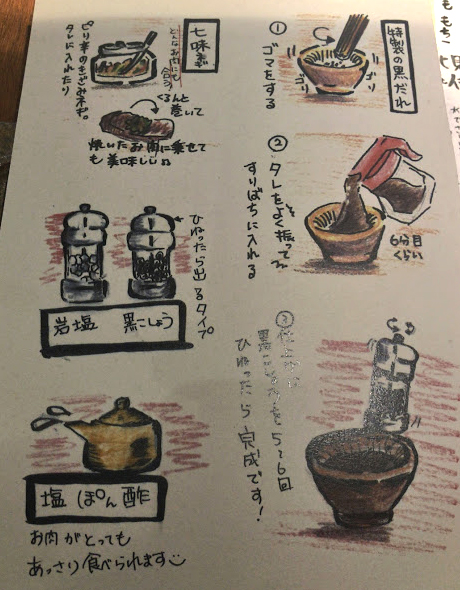 特製の黒だれ
①
ゴマをする
ゴリ
ゴリ
②
タレをよく振って
すりばちに入れる
6分目
くらい
③仕上げに
黒こしょうを5〜6回
ひねったら完成です!
七味ネギ
どんなお肉にも
合う!
ピリ辛のきざみネギ。
タレに入れたり
くるんと
巻いて
焼いたお肉に乗せて
も美味しい♫
ひねったら出るタイプ
岩塩 黒こしょう
塩ぽん酢
お肉がとっても
あっさり食べられます